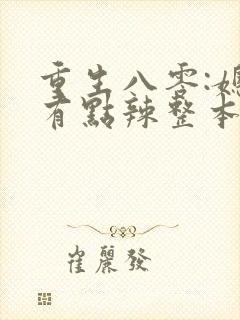 重生八零:媳
有點辣整本
崔麗發